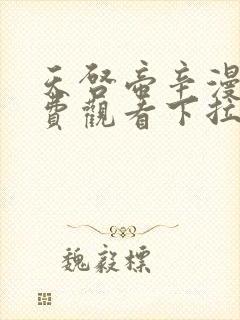 天啓帝辛漫
費觀看下拉
魏毅標